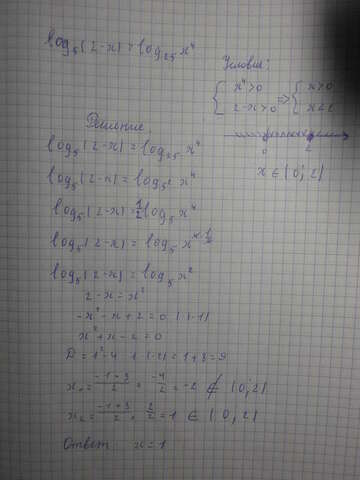 log₅(2-x) = log₂₅ x⁴
Условия:
{ x⁴>0 => { x>0
2-x>0 x<2
0 2
x ∈ (0; 2)
Решение
log₅(2-x) = log₂₅ x⁴
log₅(2-x) = log₅² x⁴
log₅(2-x) = 1/2 log₅ x⁴
log₅(2-x) = log₅ x^(4·1/2)
log₅(2-x) = log₅ x²
2-x = x²
-x²-x+2=0 |(-1)
x²+x-2=0
D = 1²-4·1·(-2) = 1+8=9
x₁ = (-1-3)/2 = -4/2 = -2 ∉ (0; 2)
x₂ = (-1+3)/2 = 2/2 = 1 ∈ (0; 2)
Ответ x=1